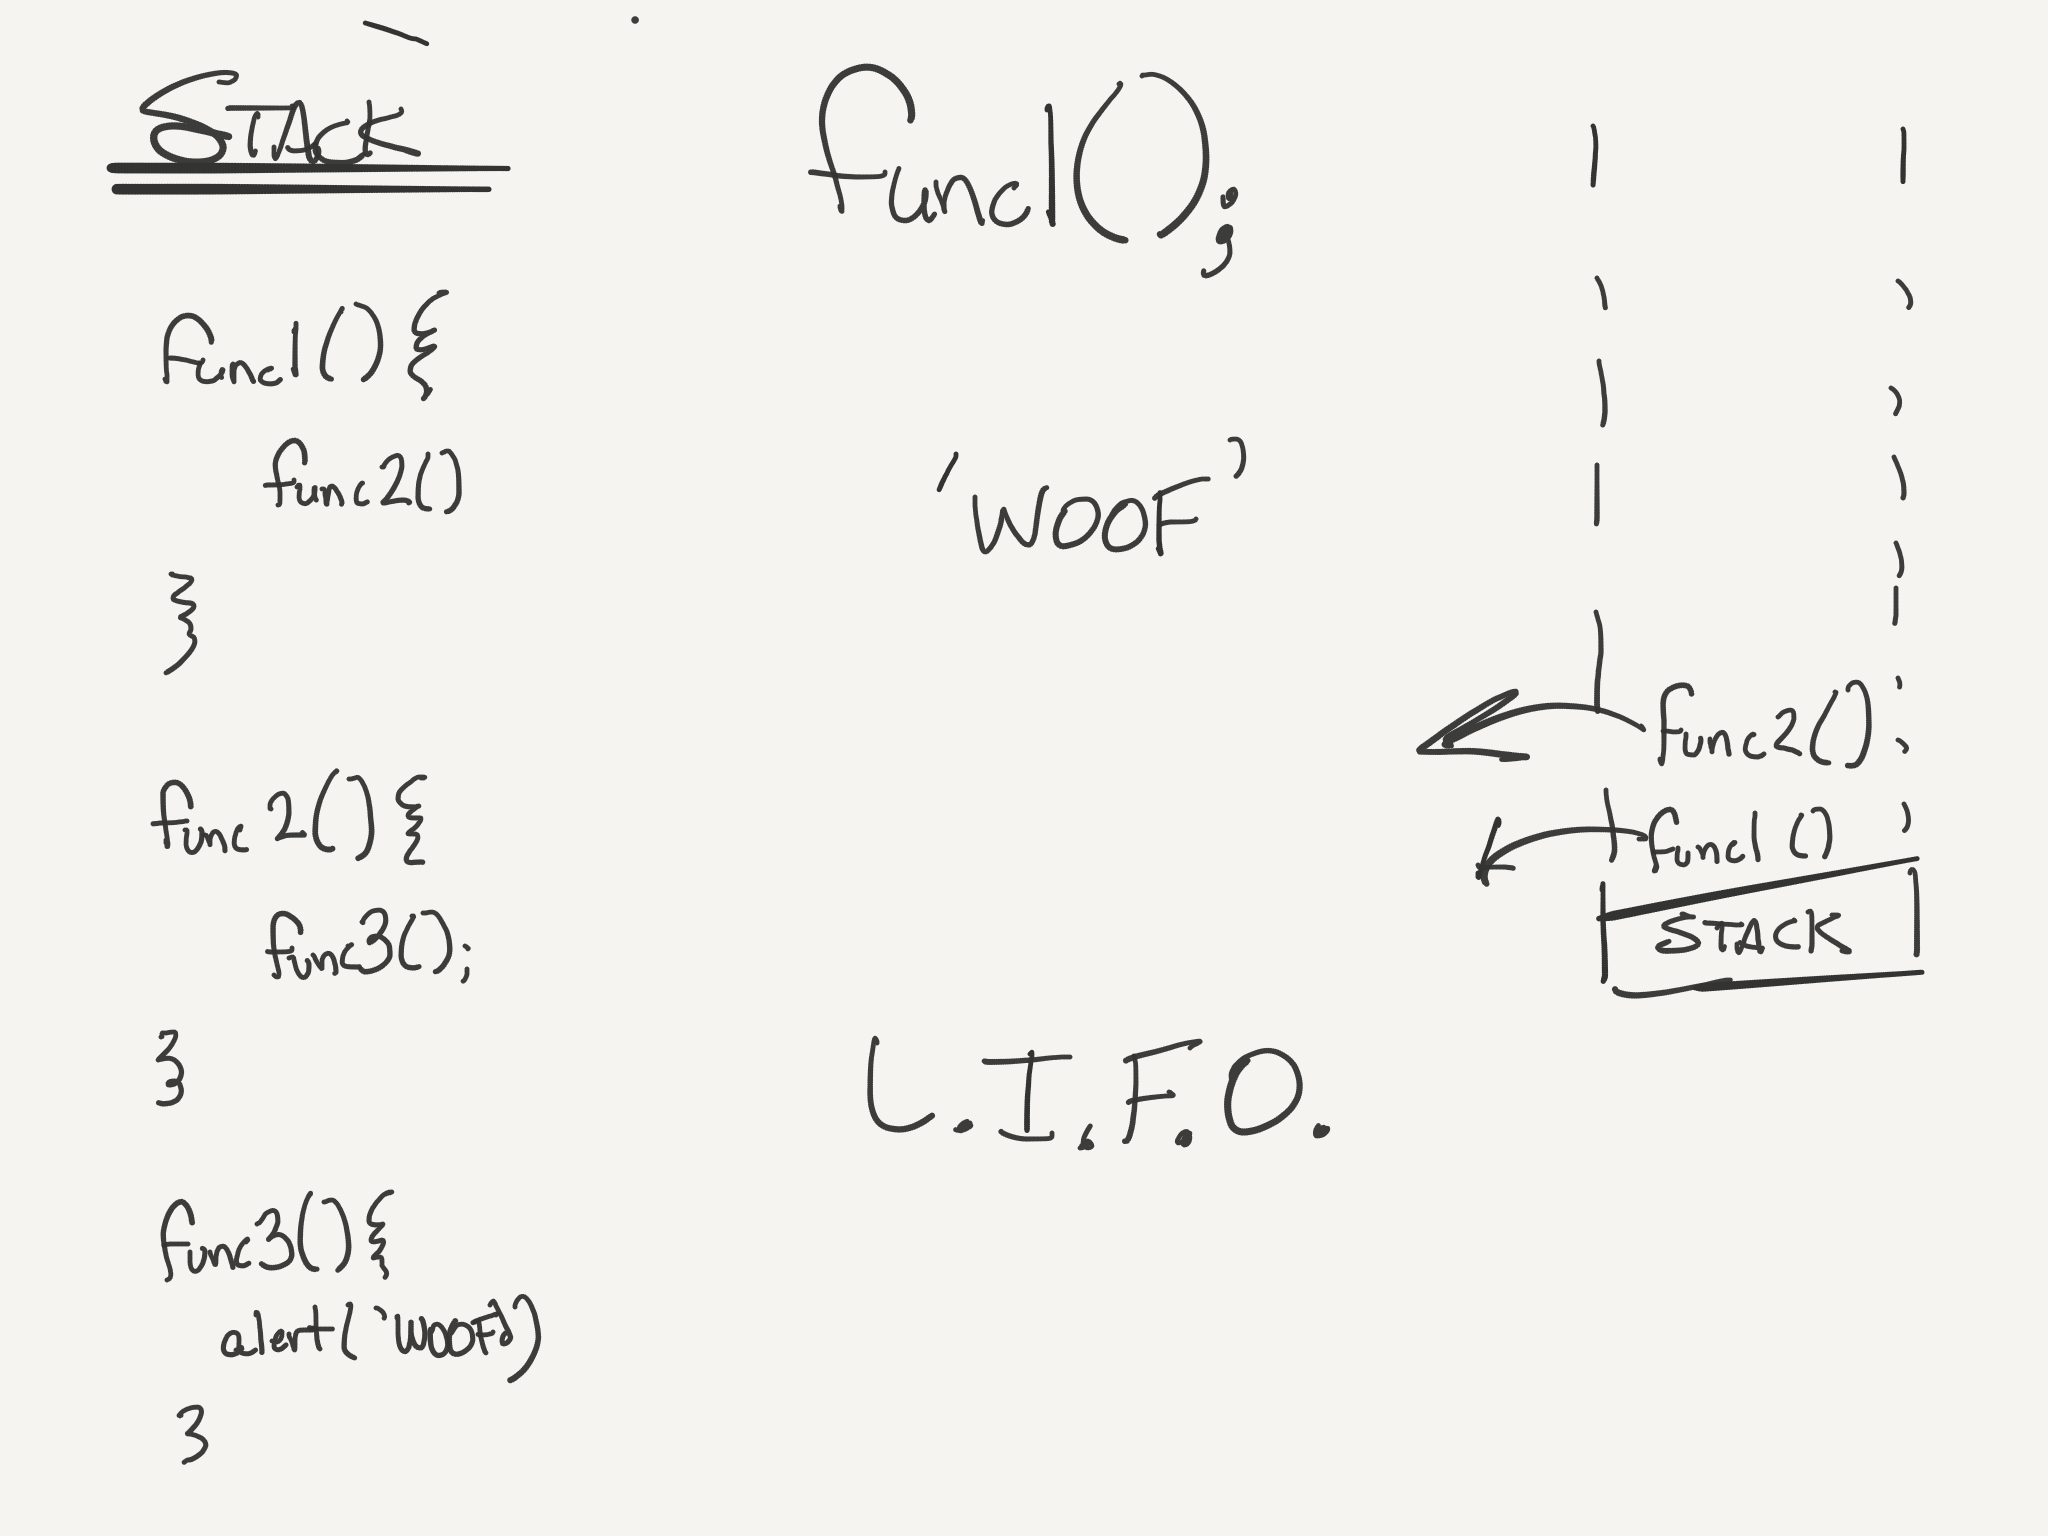 STACK
func1() {
func2()
}
func2() {
func3();
}
func3() {
alert('WOOF')
}
func1();
'WOOF'
L.I.F.O.
func2()
func1()
STACK